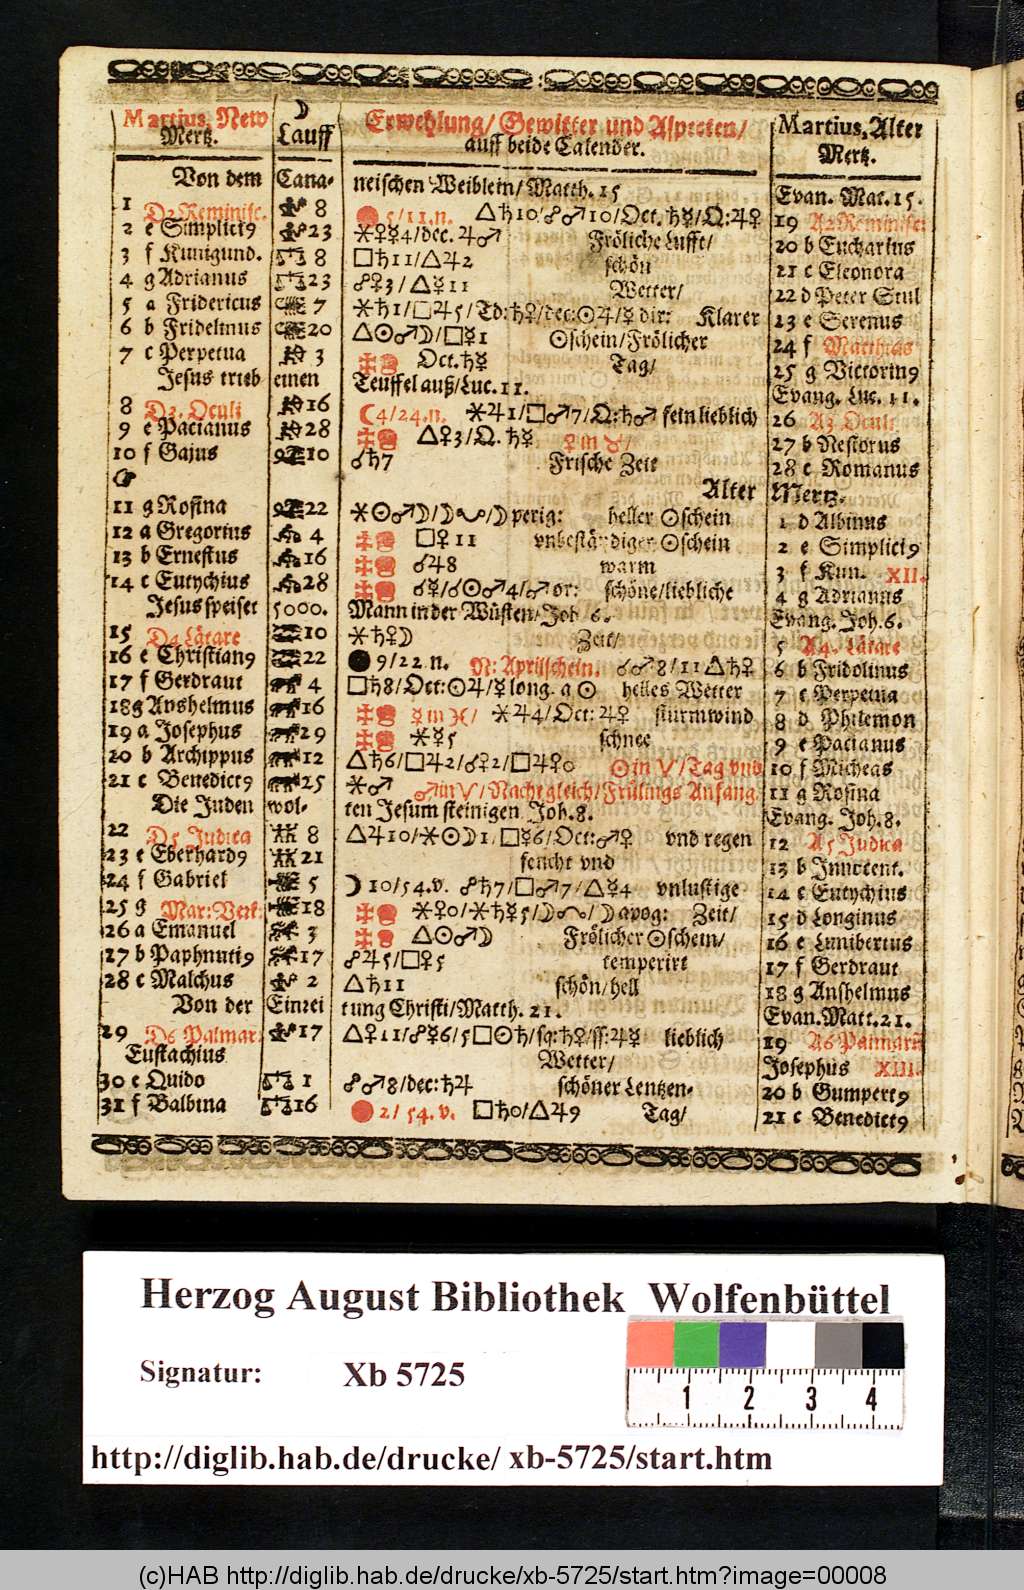 Martius, New ☽ Erwehlung/ Gewitter und Aspecten/ Martius, Alter
Mertz. Lauff auff beide Calender. Mertz.
Von dem Cana- neischen Weiblein/ Matth. 15 Evan. Mat. 15.
1 D2 Reminisc. 8 5/11.n. △♄10/☍♂10/Oct. ♄☿/Q:♃♀ 19 A2 Reminisc:
2 e Simplici9 23 ⚹♀☿4/dec. ♃♂ Fröliche Lufft/ 20 b Eucharius
3 f Kunigund. ♎ 8 □♄11/△♃2 schön 21 c Eleonora
4 g Adrianus ♎ 23 ☍♀3/△☿11 Wetter/ 22 d Peter Stul
5 a Fridericus 7 ⚹♄1/□♃5/Td:♄♀/dec:☉♃/☿ dir: Klarer 23 e Serenus
6 b Fridelinus 20 △☉♂☽/□☿1 ☉schein/Frölicher 24 f Matthias
7 c Perpetua 3 Oct. ♄☿ Tag/ 25 g Victorin9
Jesus trieb einen Teuffel auß/Luc. 11. Evang. Luc. 11.
8 D3. Oculi 16 ☾4/24.n. ⚹♃1/□♂7/Q:♄♂ fein lieblich 26 A3 Oculi
9 e Pacianus 28 △♀3/Q. ♄☿ ♀ in ♉/ 27 b Nestorus
10 f Gajus 10 ☌♄7 Frische Zeit 28 c Romanus
☞ Alter Mertz.
11 g Rosina 22 ⚹☉♂☽/☽/☽ perig: heller ☉schein 1 d Albinus
12 a Gregorius 4 □♀11 vnbeständiger ☉schein 2 e Simplici9
13 b Ernestus 16 ☌♃8 warm 3 f Kun. XII.
14 c Eutychius 28 ☌☿/☌☉♂4/♂or: schöne/liebliche 4 g Adrianus
Jesus speiset 5000. Mann in der Wüsten/Joh. 6. Evang. Joh. 6.
15 D4 Lätare 10 ⚹♄♀☽ Zeit/ 5 A4. Lätare
16 e Christian9 22 ● 9/22.n. N: Aprilschein. ☌♂8/11△♄♀ 6 b Fridolinus
17 f Gerdraut 4 □♄8/Oct:☉♃/☿ long. a ☉ helles Wetter 7 c Perpetua
18 g Anshelmus 16 ☿ in ♓/ ⚹♃4/Oct: ♃♀ sturmwind 8 d Philemon
19 a Josephus 29 ⚹☿5 schnee 9 e Pacianus
20 b Archippus 12 △♄6/□♃2/☌♀2/□♃♀0 ☉ in ♈/Tag vnd 10 f Micheas
21 c Benedict9 25 ⚹♂ ♂ in ♈/Nacht gleich/Frülings Anfang. 11 g Rosina
Die Juden wol- ten Jesum steinigen Joh. 8. Evang. Joh. 8.
22 D5 Judica 8 △♃10/⚹☉☽1/□☿6/Oct:♂♀ vnd regen 12 A5 Judica
23 e Eberhard9 21 feucht vnd 13 b Innocent.
24 f Gabriel 5 ☽10/54.v. ☍♄7/□♂7/△☿4 vnlustige 14 c Eutychius
25 g Mar: Verk: 18 ⚹♀0/⚹♄☿5/☽/☽ apog: Zeit/ 15 d Longinus
26 a Emanuel 3 △☉♂☽ Frölicher ☉schein/ 16 e Lunibertus
27 b Paphnuti9 17 ☍♃5/□♀5 temperirt 17 f Gerdraut
28 c Malchus 2 △♄11 schön/hell 18 g Anshelmus
Von der Einrei tung Christi/Matth. 21. Evan. Matt. 21.
29 D6 Palmar: 17 △♀11/☍☿6/5□☉♄/sq:♄♀/ss:♃☿ lieblich 19 A6 Palmarū
Eustachius Wetter/ Josephus XIII.
30 e Quido ♎ 1 ☍♂8/dec:♄♃ schöner Lentzen- 20 b Gumpert9
31 f Balbina ♎16 2/54.v. □♄0/△♃9 Tag/ 21 c Benedict9
Herzog August Bibliothek Wolfenbüttel
Signatur: Xb 5725
1 2 3 4
http://diglib.hab.de/drucke/ xb-5725/start.htm
(c)HAB http://diglib.hab.de/drucke/xb-5725/start.htm?image=00008